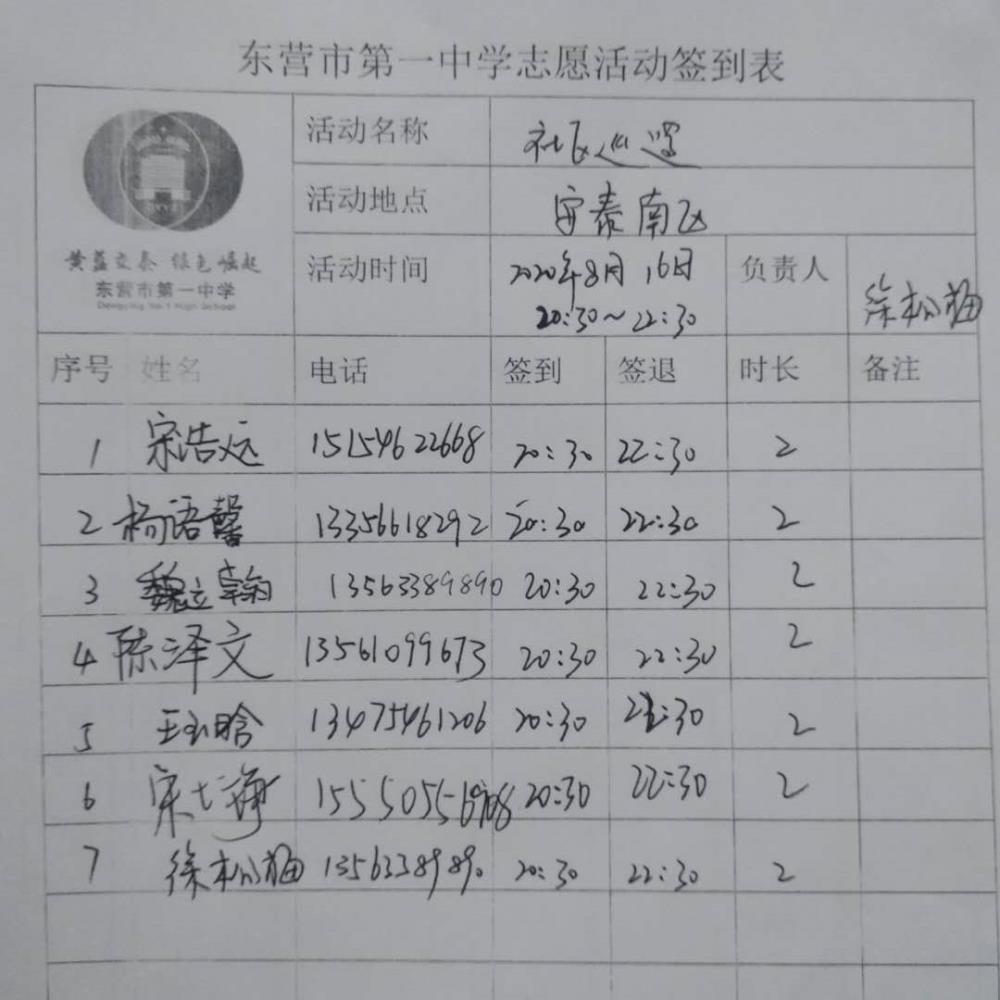 东营市第一中学志愿活动签到表
活动名称 社区巡逻
活动地点 安泰南区
黄蓝交泰 绿色崛起
东营市第一中学
Dongying No.1 High School
活动时间 2020年8月16日 20:30~22:30 负责人 徐松梅
序号 姓名 电话 签到 签退 时长 备注
1 宋浩远 15154622668 20:30 22:30 2
2 杨语馨 13356618292 20:30 22:30 2
3 魏立翰 13563389890 20:30 22:30 2
4 陈泽文 13561099673 20:30 22:30 2
5 王玉晗 13475461206 20:30 22:30 2
6 宋七海 20:30 22:30 2
7 徐松梅 13563389890 20:30 22:30 2